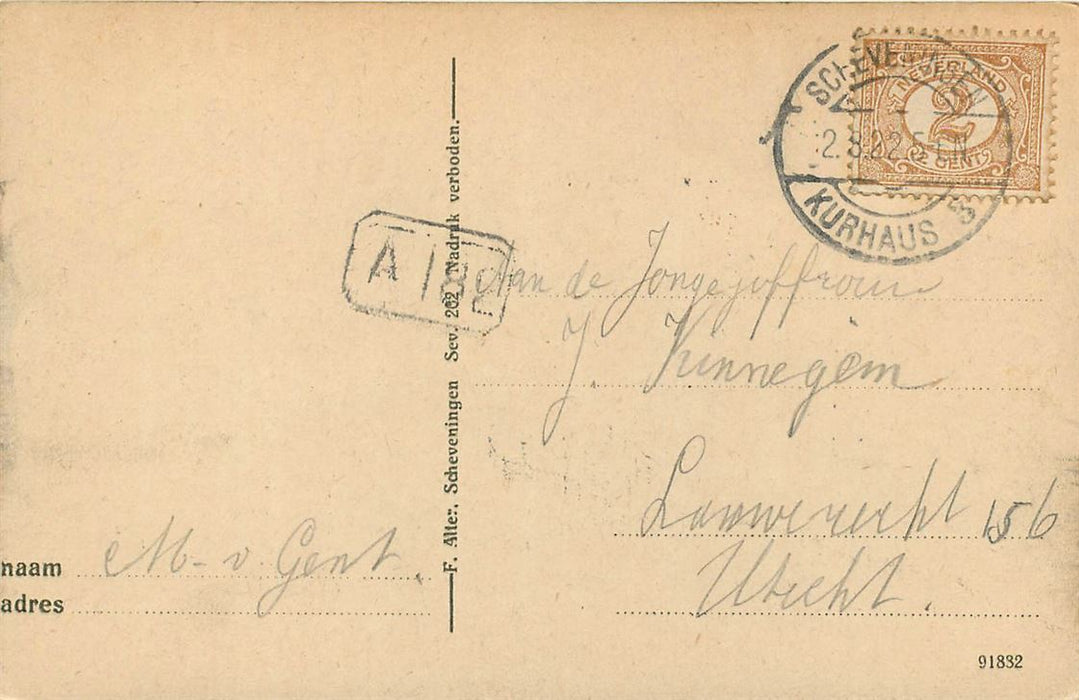 SCHEVENINGEN
2.8.22.5-6N
KURHAUS 3
NEDERLAND
2
2 CENT
A
Aan de Jongejoffrouw
J. Kinnegem
156
Utrecht.
naam M. v Gent
adres
F. Alter. Scheveningen Sev. 202 Nadruk verboden.
91832